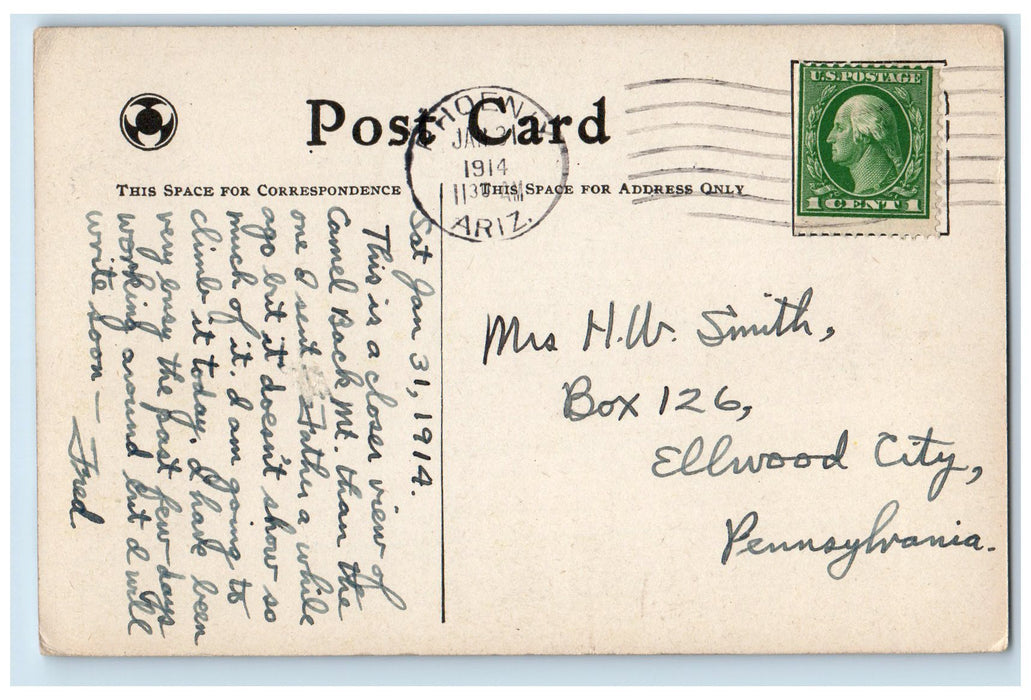 Post Card
PHOENIX
JAN 31
1914
11 30 AM
ARIZ.
U.S. POSTAGE
1 CENT 1
THIS SPACE FOR CORRESPONDENCE
THIS SPACE FOR ADDRESS ONLY
Sat Jan 31, 1914.
This is a closer view of
Camel Back Mt. than the
one I sent Father a while
ago but it doesn't show so
much of it. I am going to
climb it today. I have been
very busy the past few days
working around but I will
write soon —
Fred.
Mrs H.W. Smith,
Box 126,
Ellwood City,
Pennsylvania.